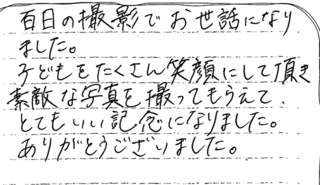 百日の撮影でお世話になり
ました。
子どもをたくさん笑顔にして頂き
素敵な写真を撮ってもらえて、
とてもいい記念になりました。
ありがとうございました。